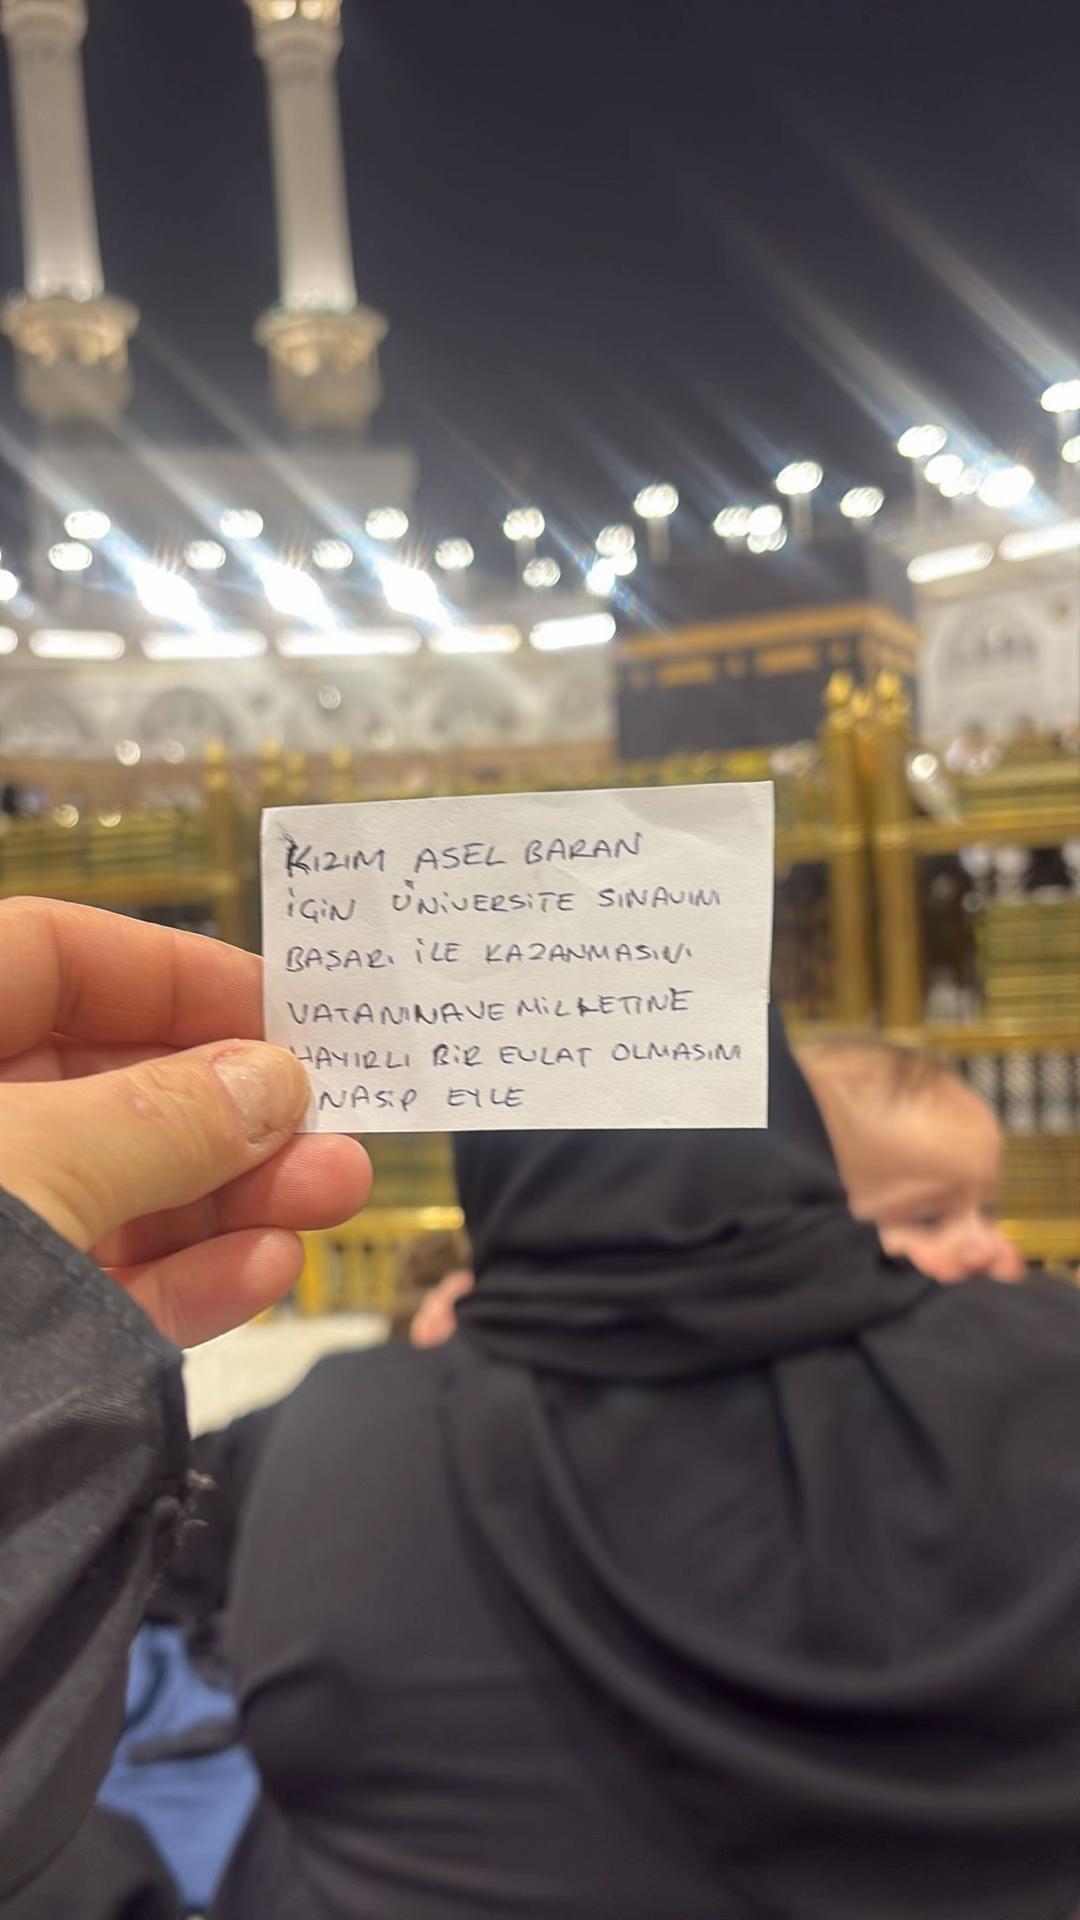 KIZIM ASEL BARAN
İÇİN ÜNİVERSİTE SINAVINI
BAŞARI İLE KAZANMASINI
VATANINAVE MİLLETİNE
HAYIRLI BİR EVLAT OLMASINI
NASİP EYLE